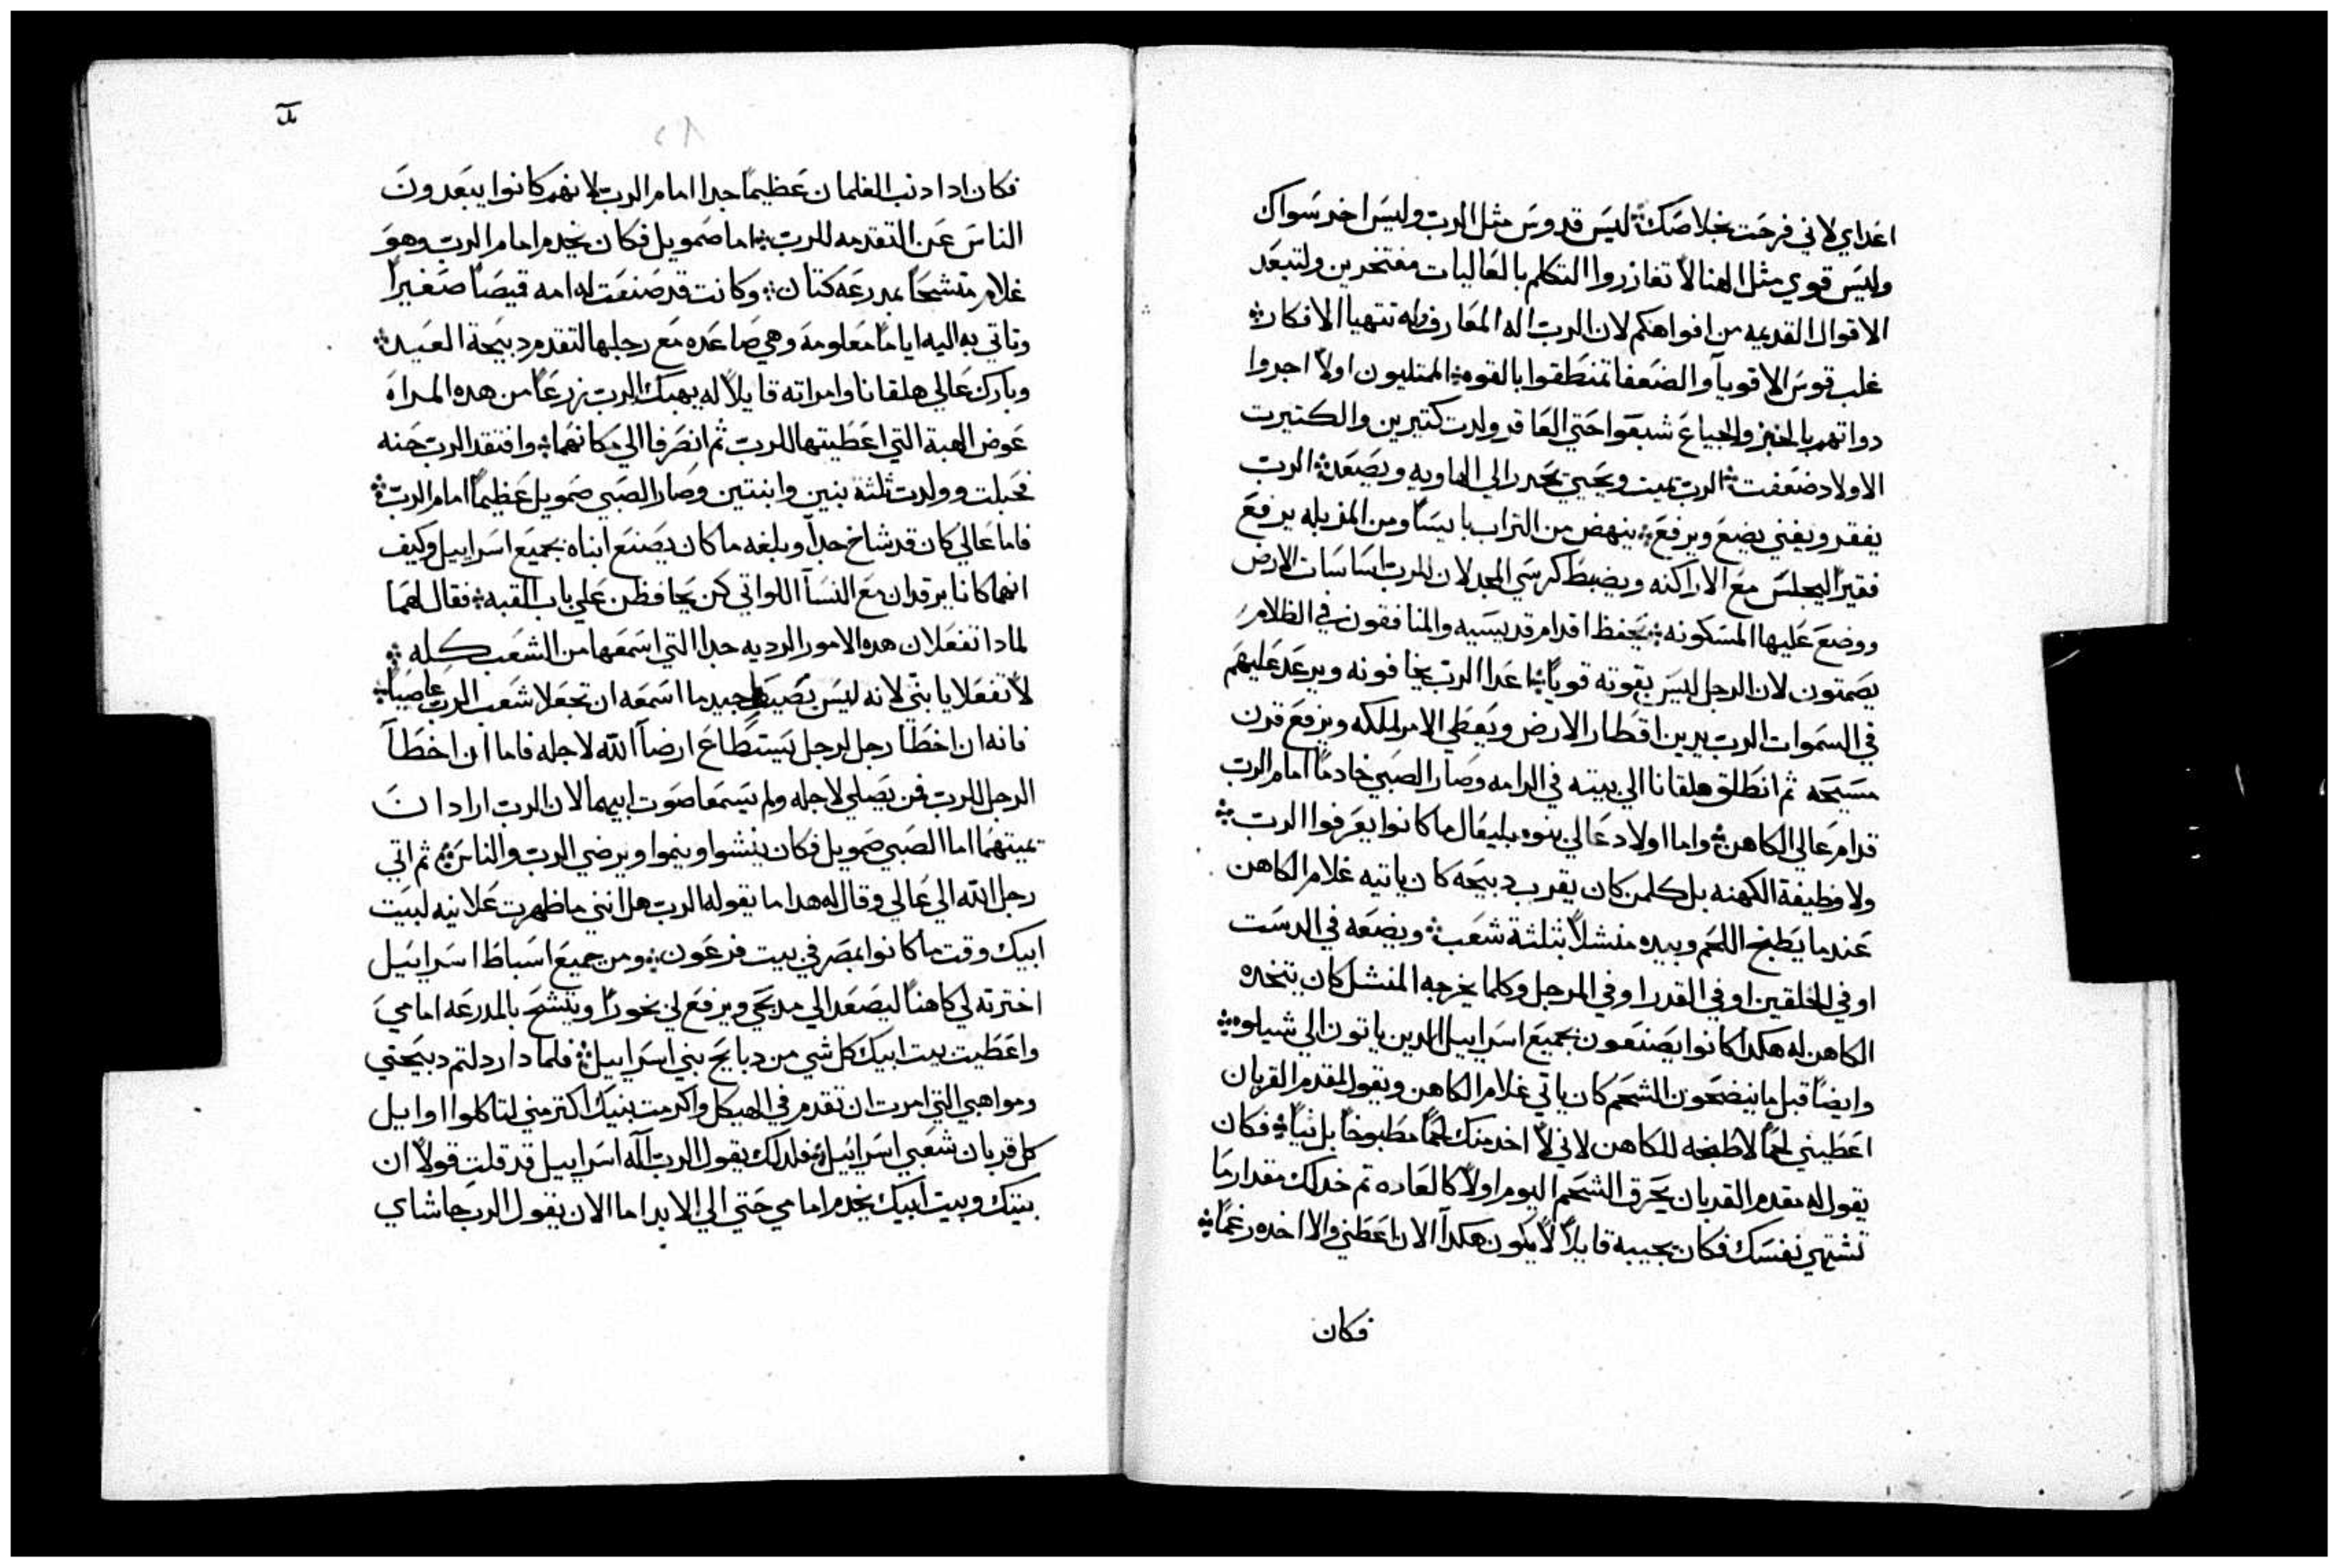 اعداي لاني فرحت بخلاصك ۞ ليس قدوس مثل الرب وليس اخر سواك
وليس قوي مثل الهنا لا تغازروا التكلم بالعاليات مفتخرين ولتبعد
الاقوال القديمه من افواهكم لان الرب اله المعارف وله تتهيا الافكار ۞
غلب قوس الاقويآ والضعفا تمنطقوا بالقوه ۞ الممتليون اولاً اجروا
دواتهم بالخبز والجياع شبعوا حتي العاقر ولدت كتيرين والكتيرت
الاولاد ضعفت ۞ الرب يميت ويحيي يحدر الي الهاويه ويصعد ۞ الرب
يفقر ويغني يضع ويرفع ۞ ينهض من التراب بايساً ومن المزبله يرفع
فقيراً ليجلس مع الاراكنه ويضبط كرسي المجد لان للرب اساسات الارض
ووضع عليها المسكونه ۞ يحفظ اقدام قديسيه والمنافقون في الظلام
يصمتون لان الرجل ليس بقوته قوياً ۞ اعدا الرب يخافونه ويرعد عليهم
في السموات الرب يدين اقطار الارض ويعطي الامر لملكه ويرفع قرن
مسيحه ثم انطلق هلقانا الي بيته في الرامه وصار الصبي خادماً امام الرب
قدام عالي الكاهن ۞ واما اولاد عالي بنوه بليعال ما كانوا يعرفوا الرب ۞
ولا وظيفة الكهنه بل كلمن كان يقرب دبيحه كان ياتيه غلام الكاهن
عندما يطبخ اللحم وبيده منشلاً بثلثة شعب ۞ ويضعه في الدست
او في الخلقين او في القدر او في المرجل وكلما يخرجه المنشل كان يتخده
الكاهن له هكدا كانوا يصنعون بجميع اسراييل الدين ياتون الي شيلوه ۞
وايضاً قبل ما ينضحون الشحم كان ياتي غلام الكاهن ويقول لمقدم القربان
اعطيني لحماً لاطبخه للكاهن لاني لا اخد منك لحماً مطبوخاً بل نياً ۞ فكان
يقول له مقدم القربان يحرق الشحم اليوم اولاً كالعاده تم خد لك مقدار ما
تشتهي نفسك فكان يجيبه قايلاً لا يكون هكدا الان اعطني والا اخده رغماً ۞
فكان
فكان ادا دنب الغلمان عظيماً جدا امام الرب لانهم كانوا يبعدون
الناس عن التقدمه للرب ۞ اما صمويل فكان يخدم امام الرب وهو
غلام متشحاً بمدرعه كتان ۞ وكانت قد صنعت له امه قميصاً صغيراً
وتاتي به اليه اياماً معلومه وهي صاعده مع رجلها لتقدم دبيحة العيد ۞
وبارك عالي هلقانا وامراته قايلاً له يهبك الرب زرعاً من هده المراه
عوض الهبة التي اعطيتها للرب ثم انصرفا الي مكانهما ۞ وافتقد الرب حنه
فحبلت وولدت ثلثة بنين وابنتين وصار الصبي صمويل عظيماً امام الرب ۞
فاما عالي كان قد شاخ جداً وبلغه ما كان يصنع ابناه بجميع اسراييل وكيف
انهما كانا يرقدان مع النسآ اللواتي كن يحافظن علي باب القبه ۞ فقال لهما
لمادا تفعلان هده الامور الرديه جدا التي اسمعها من الشعب كله ۞
لا تفعلا يا بني لانه ليس بصيط جيد ما اسمعه ان تجعلا شعب الرب عاصياً ۞
فانه ان اخطا رجل لرجل يستطاع ارضآ الله لاجله فاما ان اخطا
الرجل للرب فمن يصلي لاجله ولم يسمعا صوت ابيهما لان الرب اراد ان
يميتهما اما الصبي صمويل فكان ينشوا وينموا ويرضي الرب والناس ۞ ثم اتي
رجل الله الي عالي وقال له هدا ما يقوله الرب هل انني ما ظهرت علانيه لبيت
ابيك وقت ما كانوا بمصر في بيت فرعون ۞ ومن جميع اسباط اسراييل
اخترته لي كاهناً ليصعد الي مدبحي ويرفع لي بخوراً ويتشح بالمدرعه امامي
واعطيت بيت ابيك كل شي من دبايح بني اسراييل ۞ فلمادا ردلتم دبيحتي
ومواهبي التي امرت ان تقدم في الهيكل واكرمت بنيك اكتر مني لتاكلوا اوايل
كل قربان شعبي اسراييل ۞ فلدلك يقول الرب اله اسراييل قد قلت قولاً ان
بيتك وبيت ابيك يخدم امامي حتي الي الابد اما الان يقول الرب حاشاي